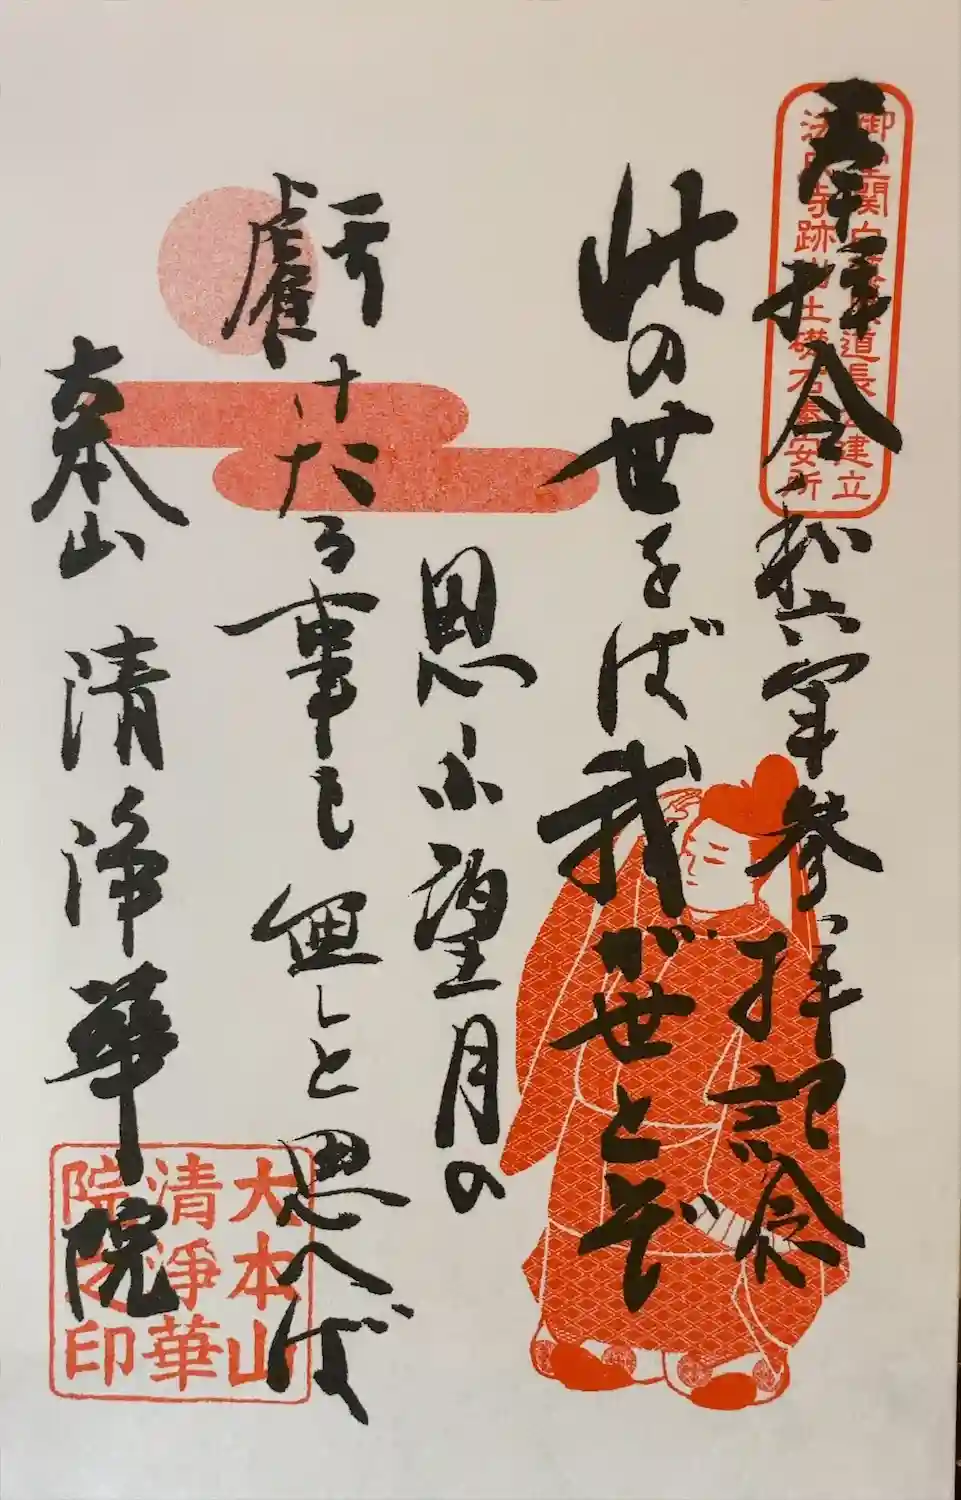 奉拝 令和六年 参拝記念
御堂関白藤原道長公建立
法成寺跡出土礎石奉安所
此の世をば我が世とぞ
思ふ望月の
虧けたる事も無しと思へば
大本山 清浄華院
大本山
清淨華
院之印